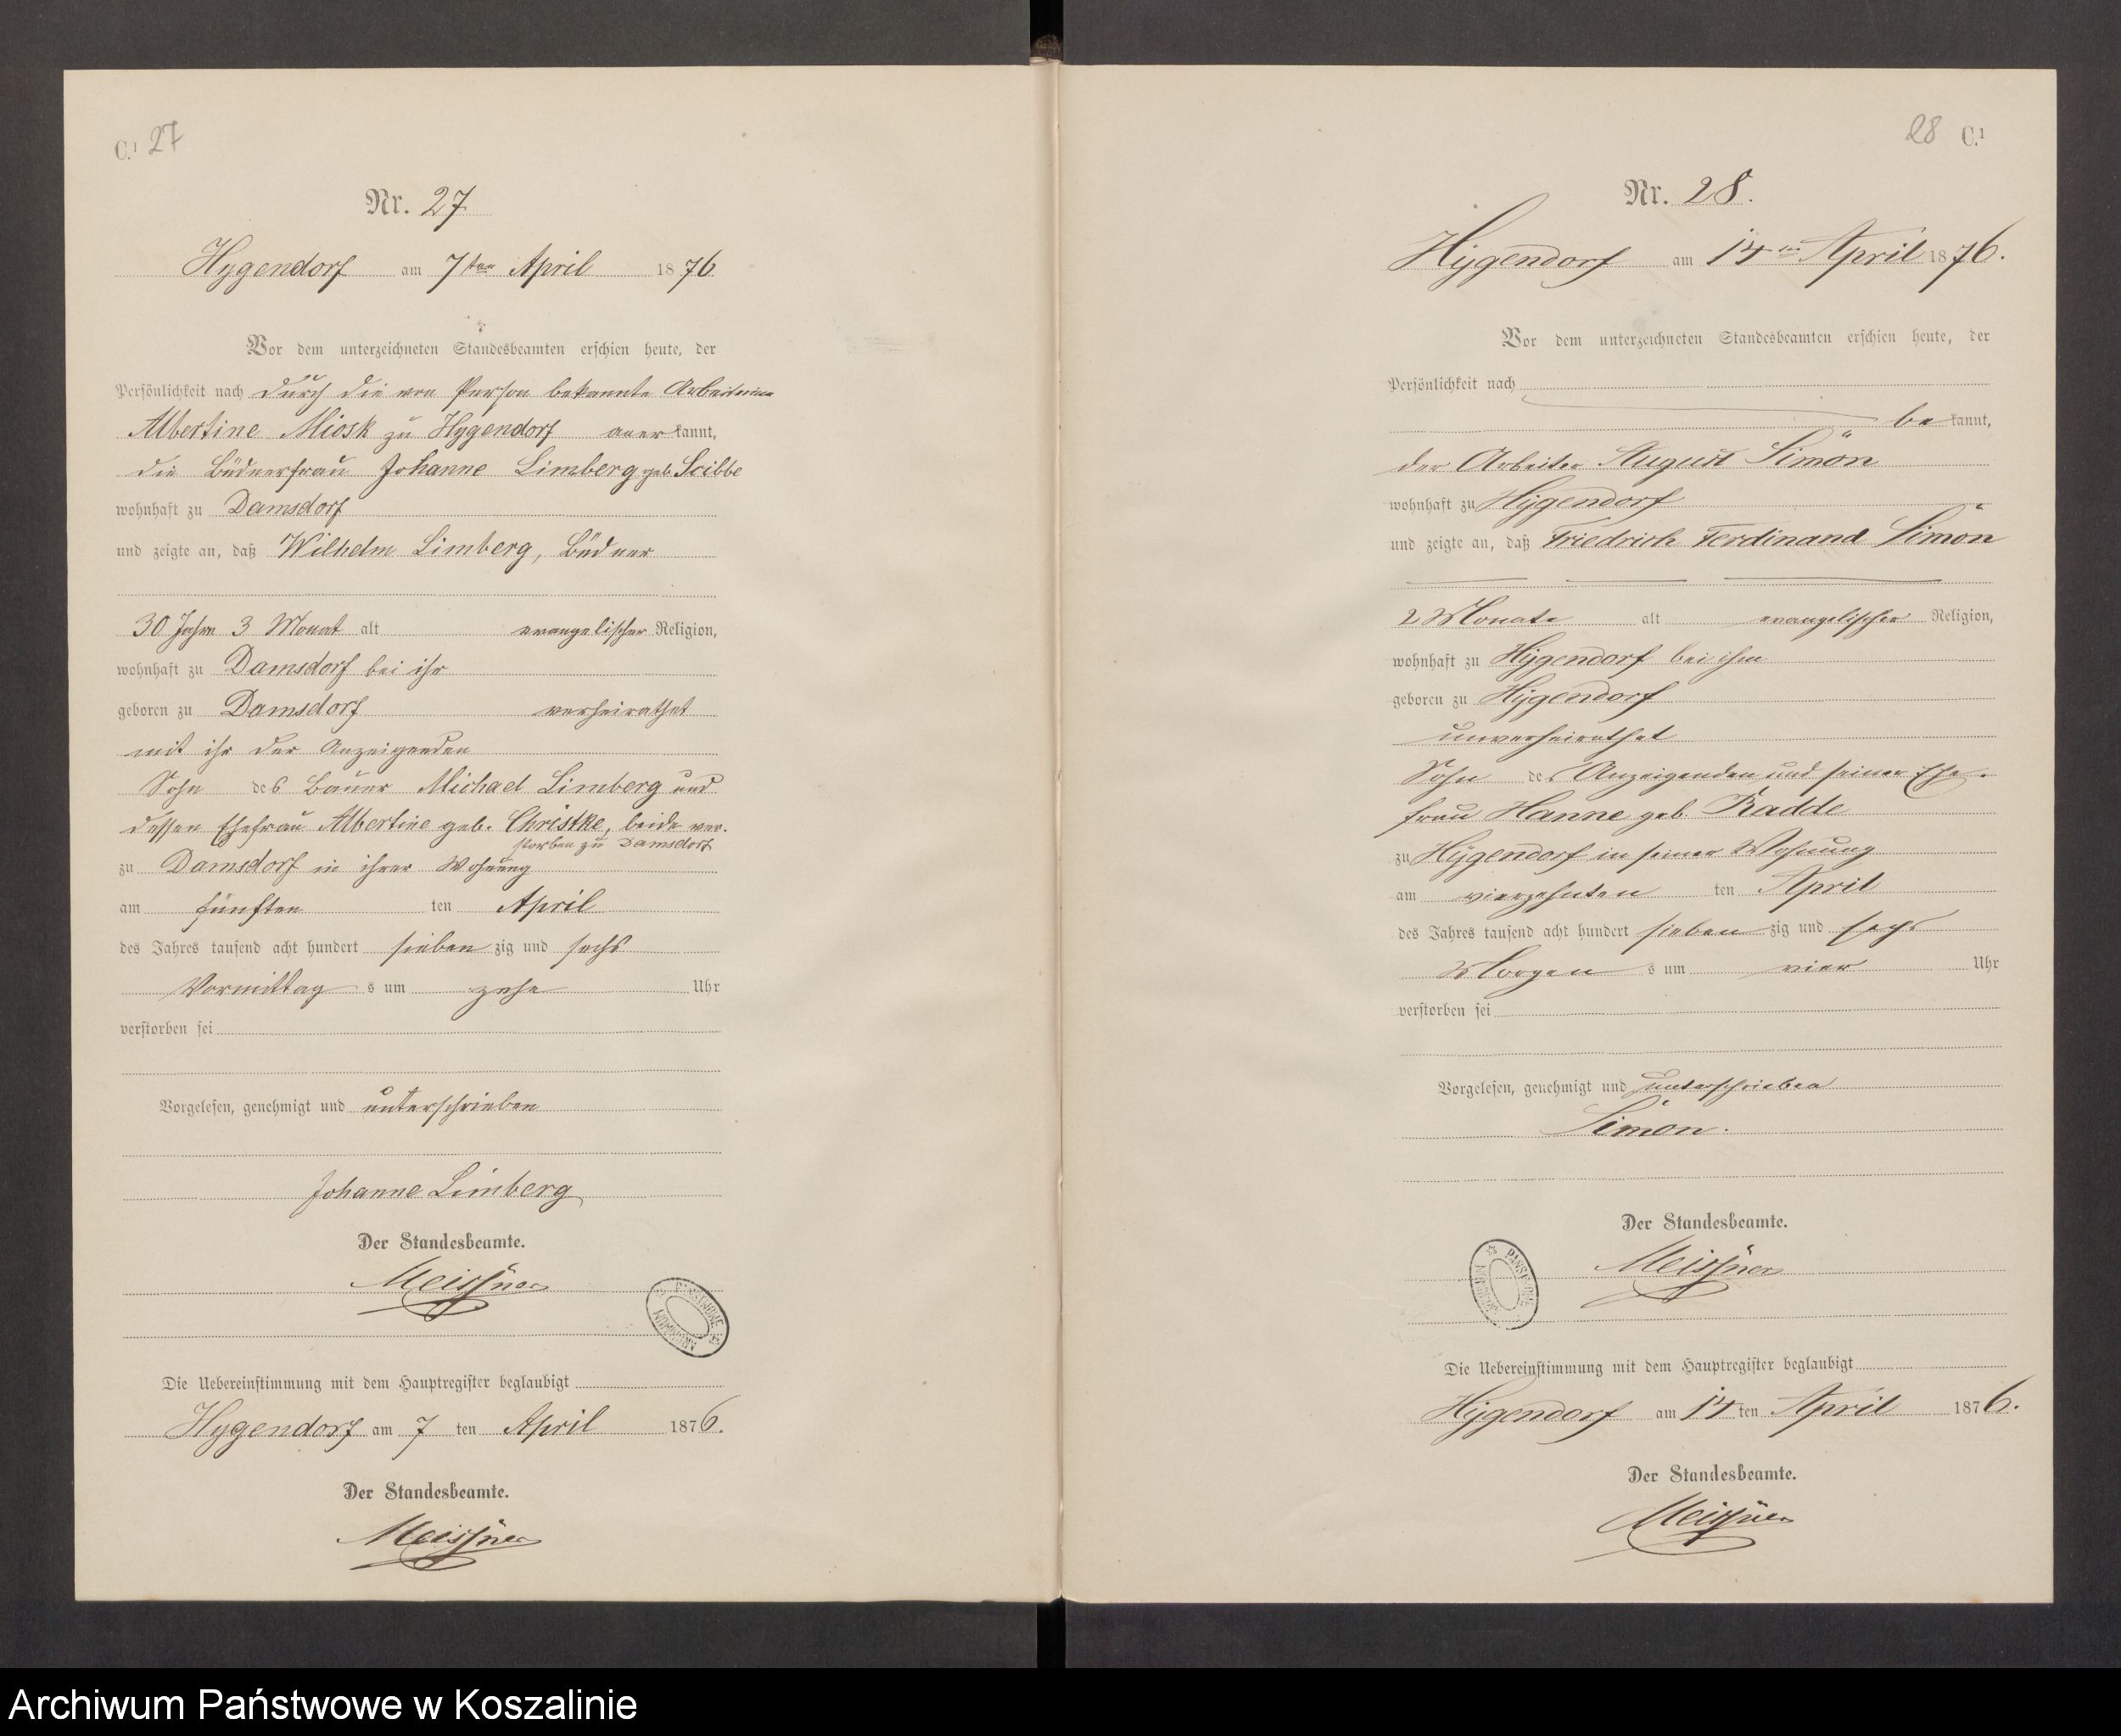 C.¹ 27
Nr. 27
Hygendorf am 7ten April 1876.
Vor dem unterzeichneten Standesbeamten erschien heute, der
Persönlichkeit nach durch die von Person bekannte
Albertine Miosk zu Hygendorf anerkannt,
die Büdnerfrau Johanne Limberg geb. Scibbe
wohnhaft zu Damsdorf
und zeigte an, daß Wilhelm Limberg, Büdner
30 Jahre 3 Monat alt evangelischer Religion,
wohnhaft zu Damsdorf bei ihr
geboren zu Damsdorf verheirathet
mit ihr der Anzeigenden
Sohn des Bauer Michael Limberg und
dessen Ehefrau Albertine geb. Christke, beide ver-
storben zu Damsdorf
zu Damsdorf in ihrer Wohnung
am fünften ten April
des Jahres tausend acht hundert sieben zig und sechs
Vormittag s um zehn Uhr
verstorben sei
Vorgelesen, genehmigt und unterschrieben
Johanne Limberg
Der Standesbeamte.
Meissner
Die Uebereinstimmung mit dem Hauptregister beglaubigt
Hygendorf am 7 ten April 1876.
Der Standesbeamte.
Meissner
28 C.¹
Nr. 28.
Hygendorf am 14ten April 1876.
Vor dem unterzeichneten Standesbeamten erschien heute, der
Persönlichkeit nach
bekannt,
der Arbeiter August Simon
wohnhaft zu Hygendorf
und zeigte an, daß Friedrich Ferdinand Simon
2 Monate alt evangelischer Religion,
wohnhaft zu Hygendorf bei ihm
geboren zu Hygendorf
unverheirathet
Sohn des Anzeigenden und seiner Ehe-
frau Hanne geb. Radde
zu Hygendorf in seiner Wohnung
am vierzehnten ten April
des Jahres tausend acht hundert sieben zig und sechs
Morgen s um vier Uhr
verstorben sei
Vorgelesen, genehmigt und unterschrieben
Simon.
Der Standesbeamte.
Meissner
Die Uebereinstimmung mit dem Hauptregister beglaubigt
Hygendorf am 14 ten April 1876.
Der Standesbeamte.
Meissner
Archiwum Państwowe w Koszalinie